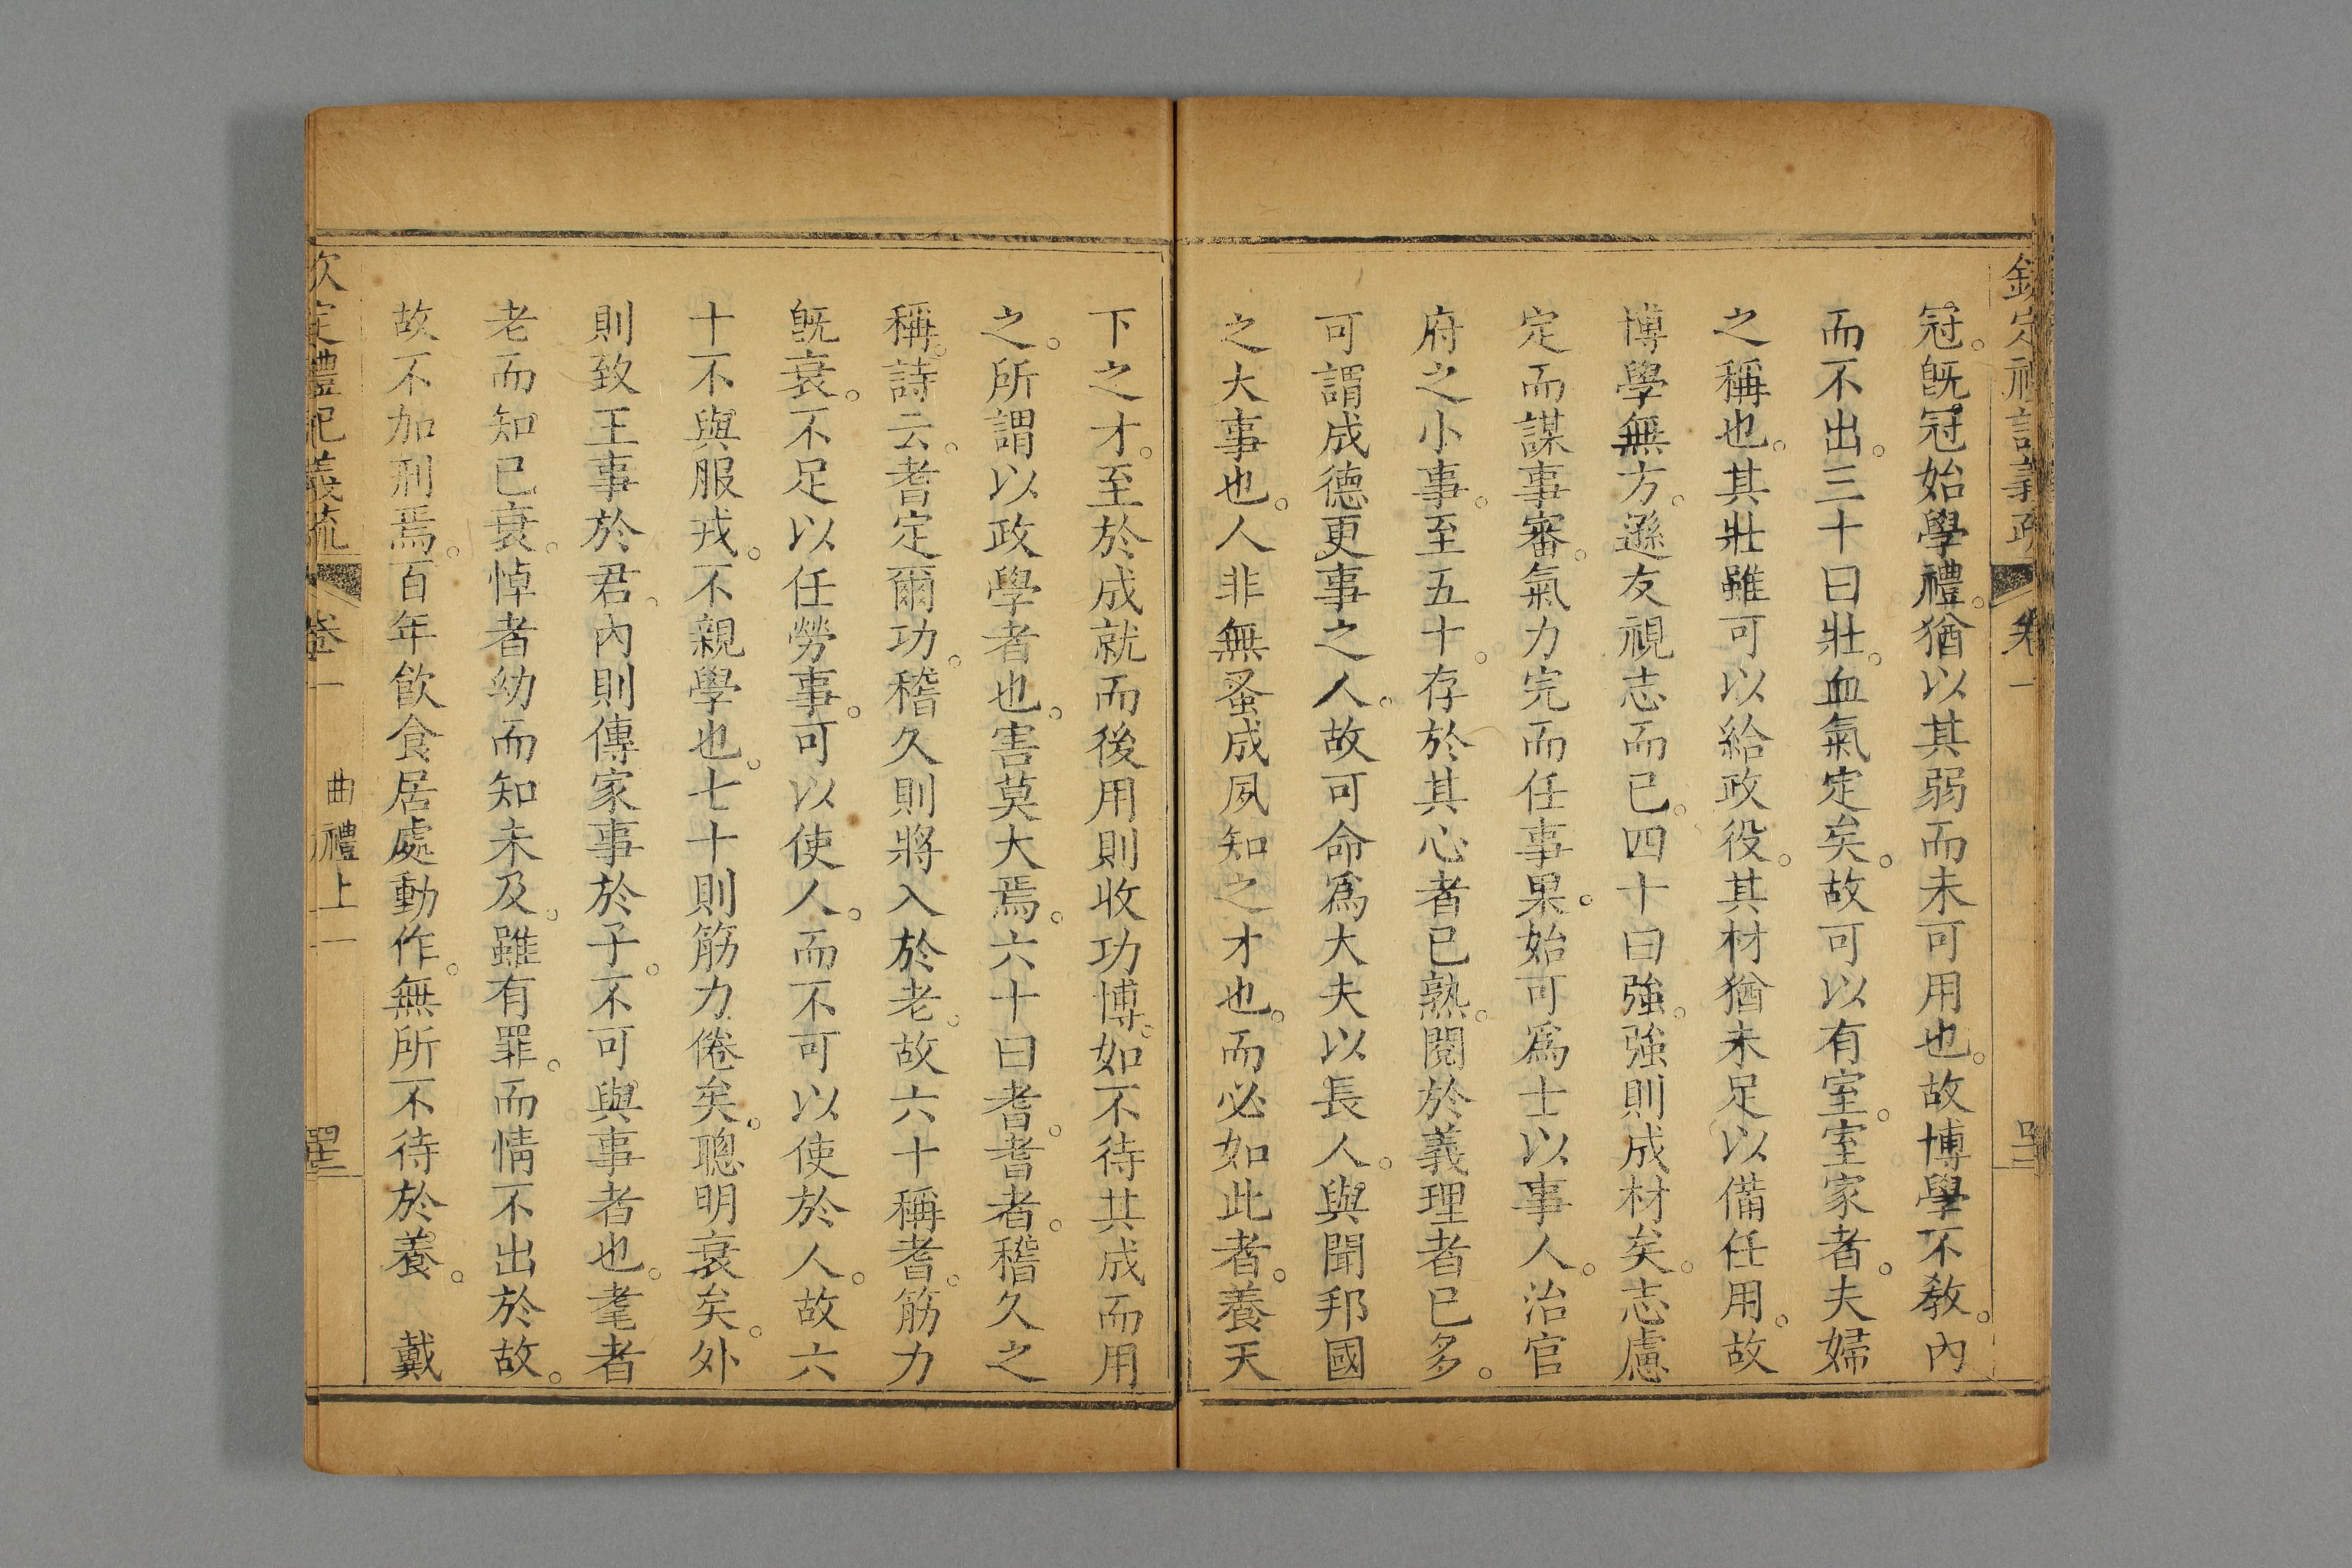 冠。旣冠始學禮。猶以其弱而未可用也。故博學不敎。內
而不出。三十曰壯。血氣定矣。故可以有室。室家者。夫婦
之稱也。其壯雖可以給政役。其材猶未足以備任用。故
博學無方。遜友視志而已。四十曰強。強則成材矣。志慮
定而謀事審。氣力完而任事果。始可爲士以事人。治官
府之小事。至五十。存於其心者已熟。閱於義理者已多。
可謂成德更事之人。故可命爲大夫以長人。與聞邦國
之大事也。人非無蚤成夙知之才也。而必如此者。養天
下之才。至於成就而後用則收功博。如不待其成而用
之。所謂以政學者也。害莫大焉。六十曰耆。耆者。稽久之
稱。詩云。耆定爾功。稽久則將入於老。故六十稱耆。筋力
旣衰。不足以任勞事。可以使人。而不可以使於人。故六
十不與服戎。不親學也。七十則筋力倦矣。聰明衰矣。外
則致王事於君。內則傳家事於子。不可與事者也。耄者
老而知已衰。悼者幼而知未及。雖有罪。而情不出於故。
故不加刑焉。百年飮食居處動作。無所不待於養。 戴
欽定禮記義疏 卷一 曲禮上一